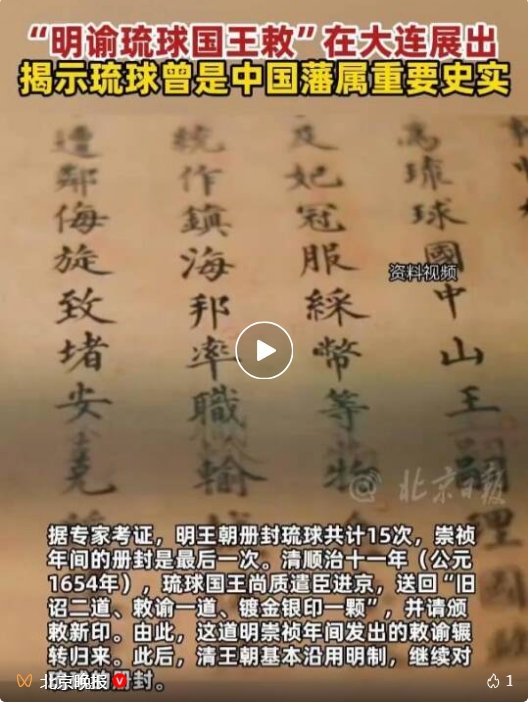 “明谕琉球国王敕”在大连展出
揭示琉球曾是中国藩属重要史实
為琉球國中山王嗣理國
及妃冠服綵幣等物
統作鎮海邦率職輸
遭鄰侮旋致堵安克
资料视频
@北京日报
据专家考证，明王朝册封琉球共计15次，崇祯
年间的册封是最后一次。清顺治十一年（公元
1654年），琉球国王尚质遣臣进京，送回“旧
诏二道、敕谕一道、镀金银印一颗”，并请颁
敕新印。由此，这道明崇祯年间发出的敕谕辗
转归来。此后，清王朝基本沿用明制，继续对
册封。
北京晚报
1